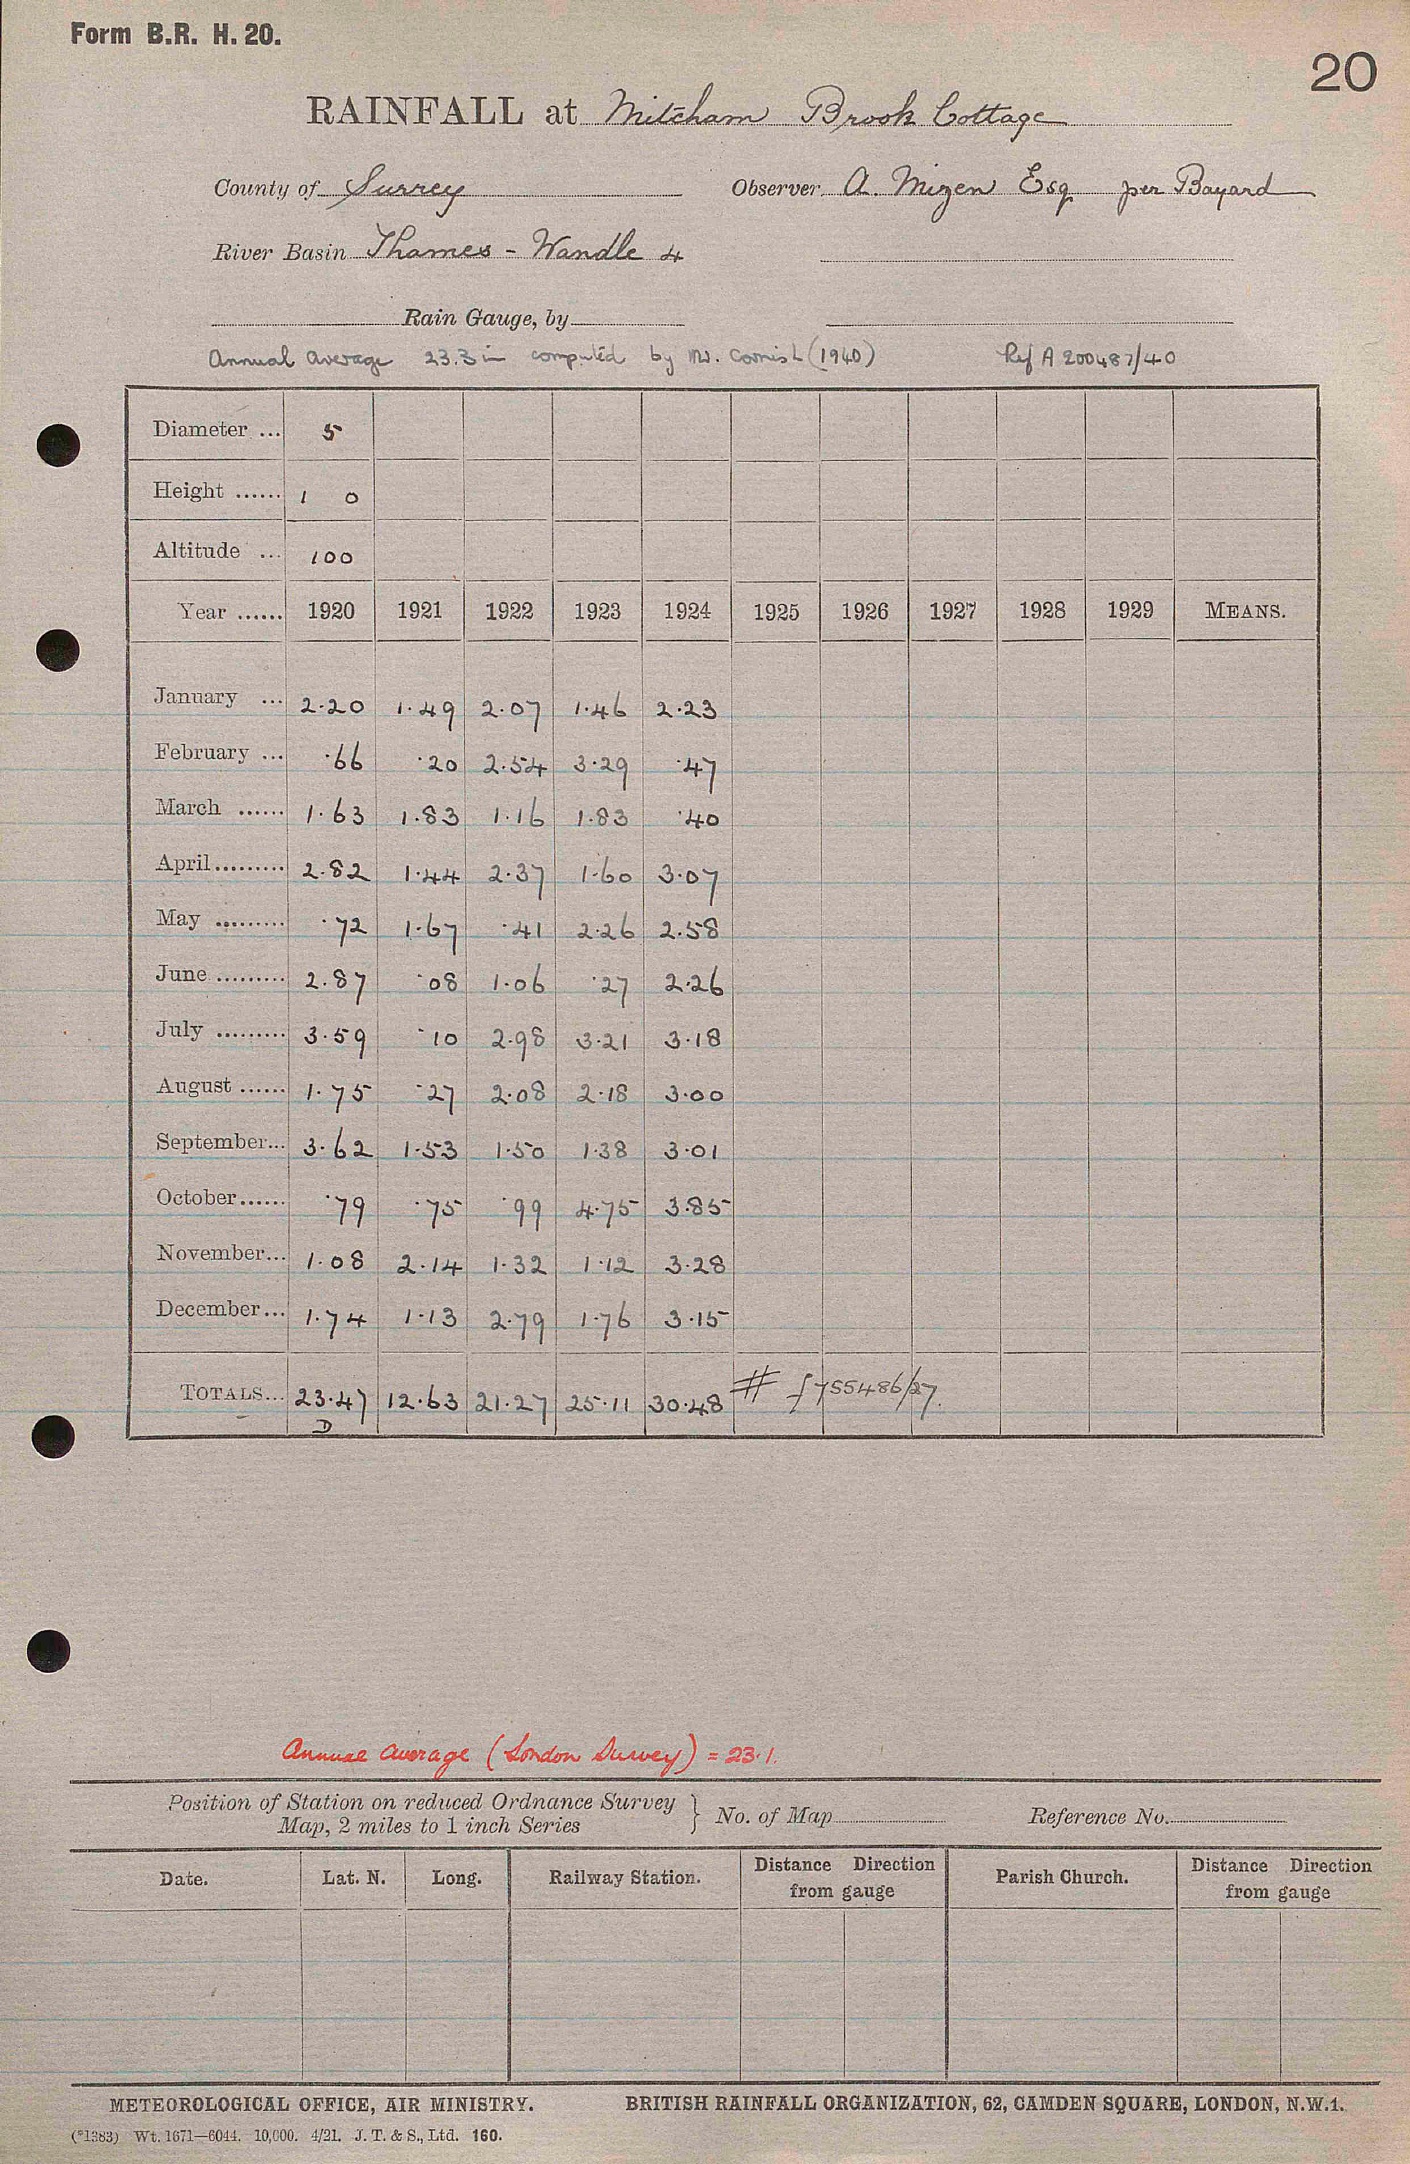 Form B.R. H. 20.
20
RAINFALL at Mitcham Brook Cottage
County of Surrey Observer A. Mizen Esq per Bayard
River Basin Thames - Wandle 4
Rain Gauge, by
Annual average 23.3 in computed by Mr. Cornish (1940) Ref A 200487/40
Diameter ... 5
Height ...... 1 0
Altitude ... 100
Year ...... 1920 1921 1922 1923 1924 1925 1926 1927 1928 1929 MEANS.
January ... 2.20 1.49 2.07 1.46 2.23
February ... .66 .20 2.54 3.29 .47
March ...... 1.63 1.83 1.16 1.83 .40
April......... 2.82 1.44 2.37 1.60 3.07
May ......... .72 1.67 .41 2.26 2.58
June ......... 2.87 .08 1.06 .27 2.26
July ......... 3.59 .10 2.98 3.21 3.18
August ...... 1.75 .27 2.08 2.18 3.00
September... 3.62 1.53 1.50 1.38 3.01
October...... .79 .75 .99 4.75 3.85
November... 1.08 2.14 1.32 1.12 3.28
December... 1.74 1.13 2.79 1.76 3.15
TOTALS... 23.47 12.63 21.27 25.11 30.48 # f 755486/27.
D
Annual Average (London Survey) = 23.1.
Position of Station on reduced Ordnance Survey
Map, 2 miles to 1 inch Series } No. of Map Reference No.
Date. Lat. N. Long. Railway Station. Distance Direction from gauge Parish Church. Distance Direction from gauge
METEOROLOGICAL OFFICE, AIR MINISTRY. BRITISH RAINFALL ORGANIZATION, 62, CAMDEN SQUARE, LONDON, N.W.1.
(*1383) Wt. 1671—6044. 10,000. 4/21. J. T. & S., Ltd. 160.